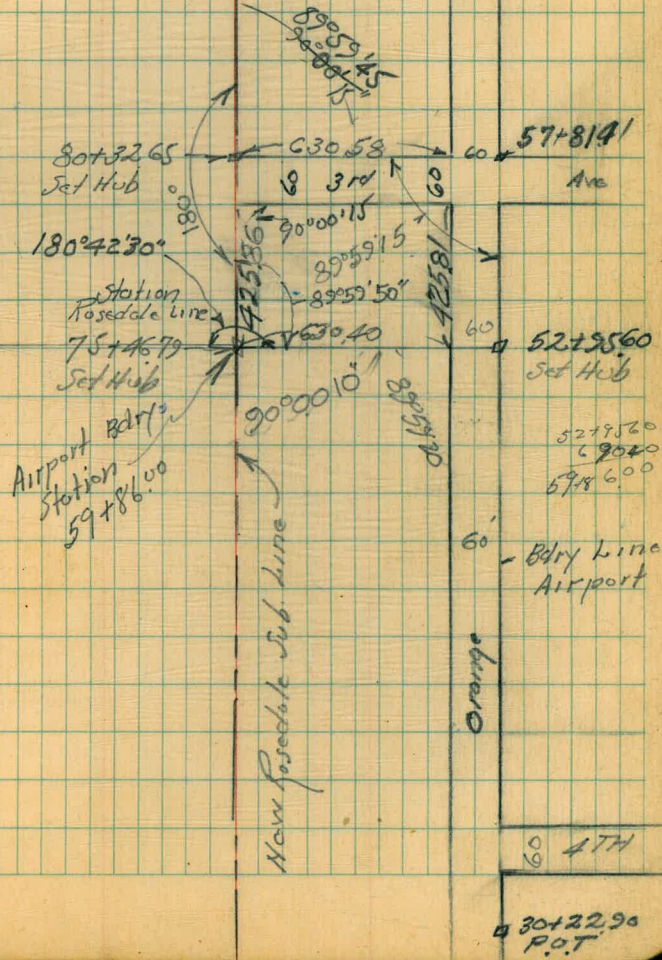 89°59'45
90°00'15"
80+32.65
Set Hub
630.58
60
57+81.41
60
3rd
60
Ave
180°
90°00'15
180°42'30"
425.86
89°59'15"
425.81
Station
Rosedale Line
89°59'50"
75+46.79
Set Hub
630.40
60
52+95.60
Set Hub
90°00'10"
Airport Bdry
Station
59+86.00
52+95.60
6 90.40
59+86.00
60'
Bdry Line
Airport
New Rosedale Sub. Line
Orange
60
4TH
30+22.90
P.O.T